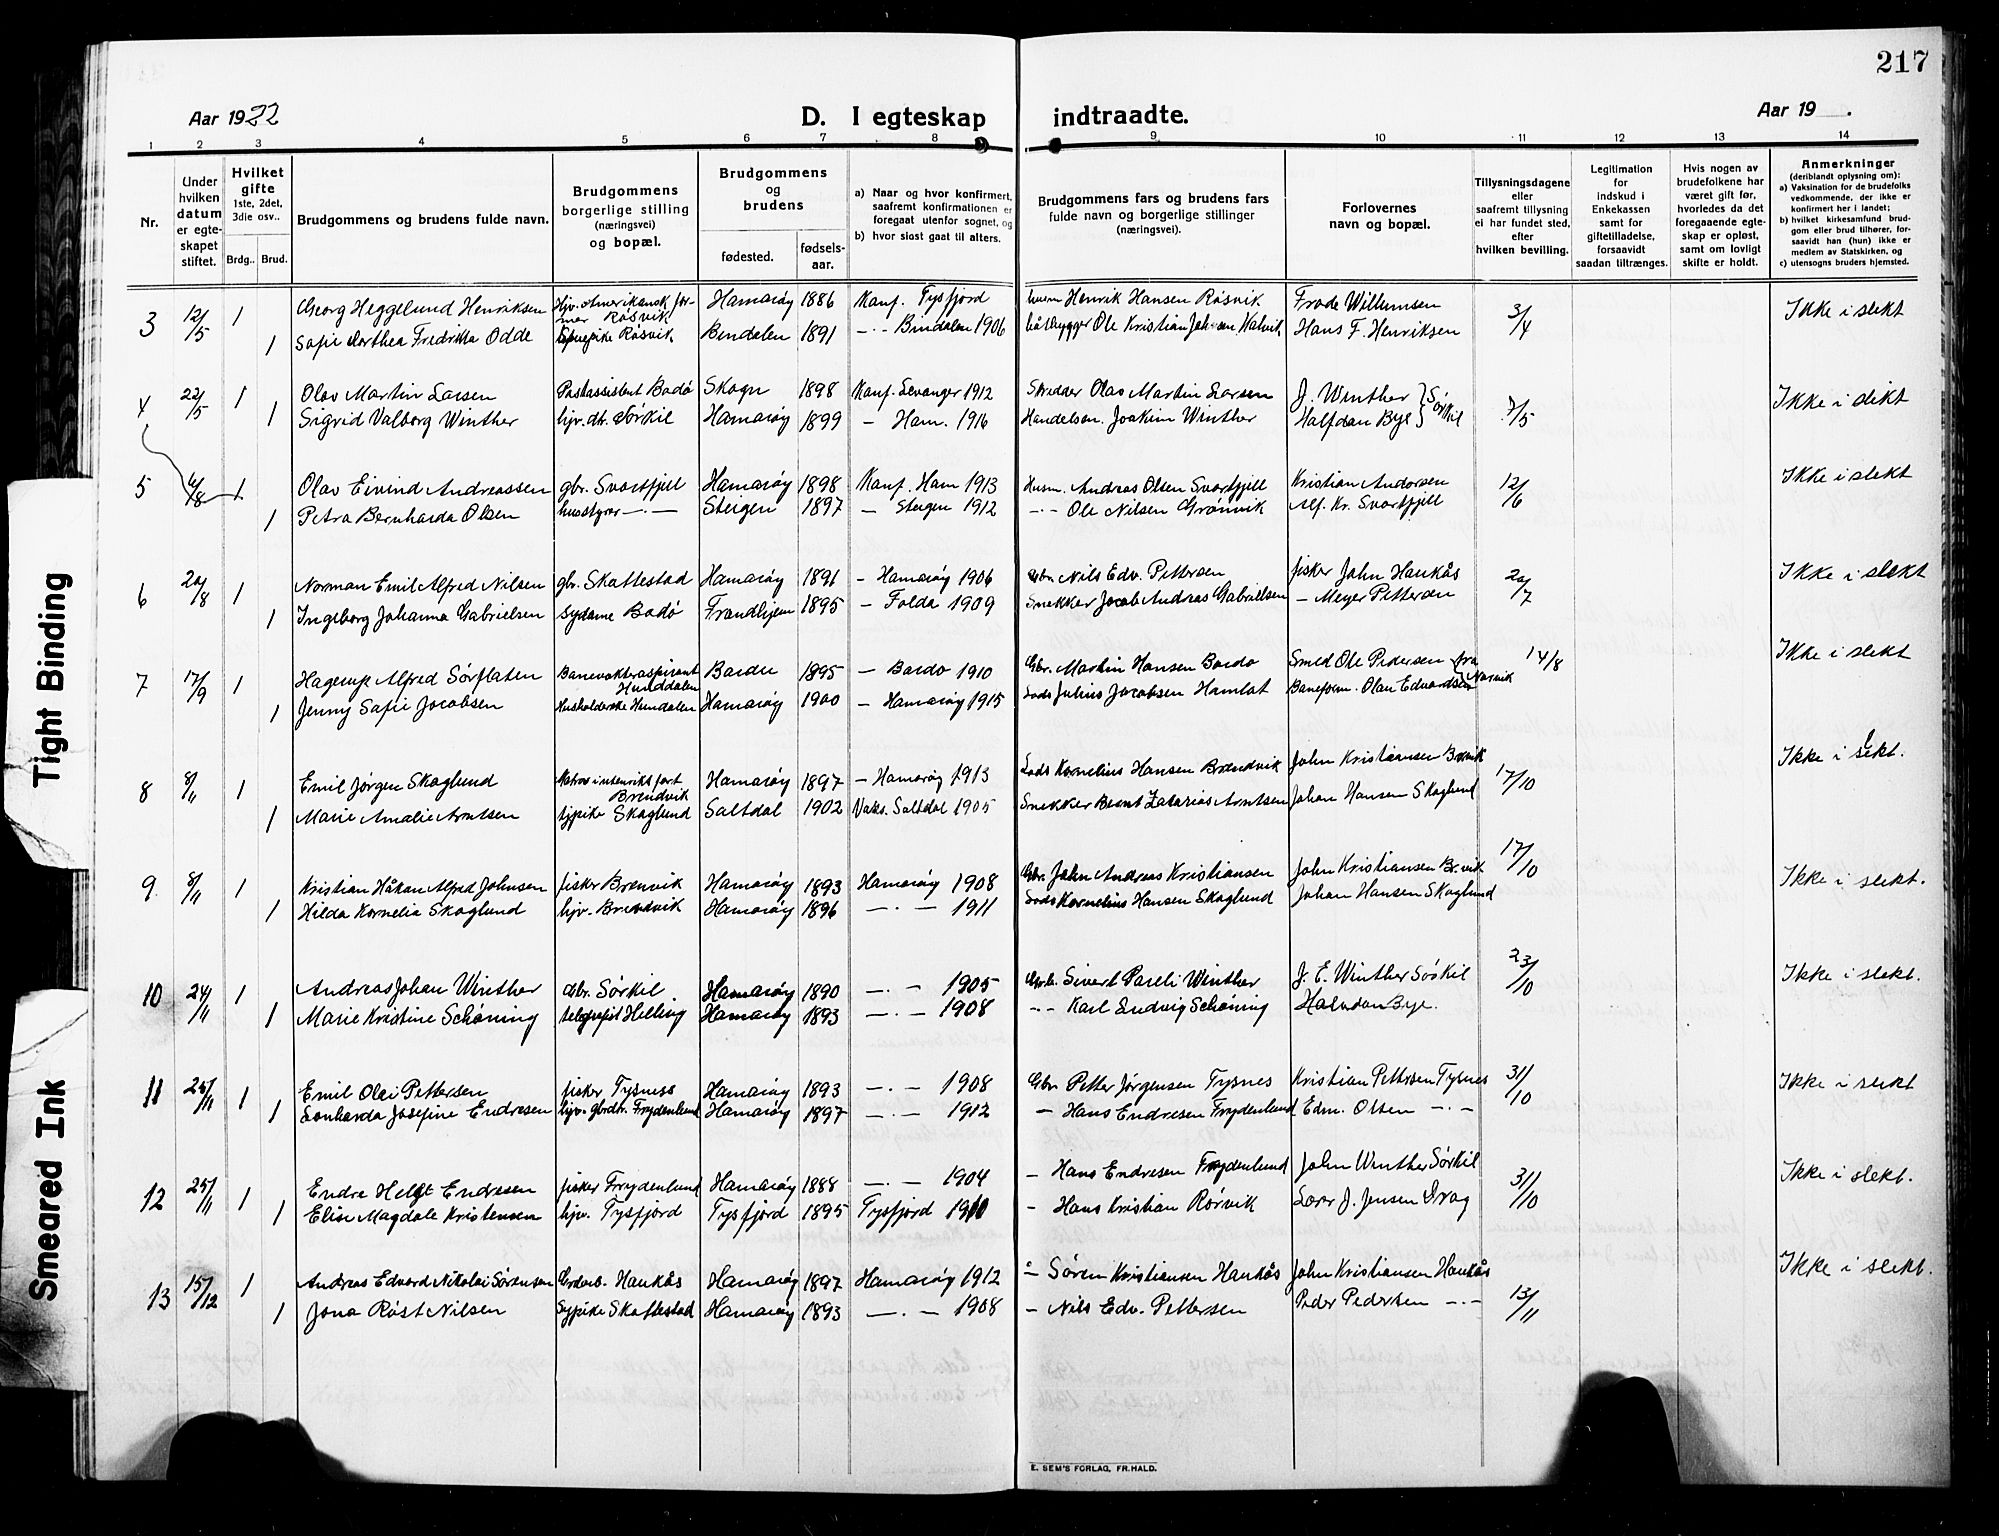 217
Aar 1922
D. I egteskap indtraadte.
Aar 19 .
1 2 3 4 5 6 7 8 9 10 11 12 13 14
Nr.
Under hvilken datum er egteskapet stiftet.
Hvilket gifte 1ste, 2det, 3die osv..
Brdg.. Brud.
Brudgommens og brudens fulde navn.
Brudgommens borgerlige stilling (næringsvei) og bopæl.
Brudgommens og brudens
fødested.
fødsels-aar.
a) Naar og hvor konfirmert, saafremt konfirmationen er foregaat utenfor sognet, og
b) hvor sidst gaat til alters.
Brudgommens fars og brudens fars fulde navn og borgerlige stillinger (næringsvei).
Forlovernes navn og bopæl.
Tillysningsdagene eller saafremt tillysning ei har fundet sted, efter hvilken bevilling.
Legitimation for indskud i Enkekassen samt for giftetilladelse, forsaavidt saadan tiltrænges.
Hvis nogen av brudefolkene har været gift før, hvorledes da det foregaaende egteskap er opløst, samt om lovligt skifte er holdt.
Anmerkninger (deriblandt oplysning om):
a) Vaksination for de brudefolks vedkommende, der ikke er konfirmert her i landet;
b) hvilket kirkesamfund brudgom eller brud tilhører, forsaavidt han (hun) ikke er medlem av Statskirken, og
c) utensogns bruders hjemsted.
3 12/5 1 Georg Heggelund Henriksen Hjv. Amerikansk farmer Røsvik Hamarøy 1886 Konf. Tysfjord Henrik Hansen Røsvik Frode Willumsen 3/4 Ikke i slekt
1 Sofie Dorthea Fredrikka Odde Røsvik Bindalen 1891 -·- Bindalen 1906 båtbygger Ole Kristian Johnsen Hans F. Henriksen
4 22/5 1 Olav Martin Larsen Postassistent Bodø Skogn 1898 Konf. Levanger 1912 Skredder Olav Martin Larsen J. Winther } Sørkil 7/5 Ikke i slekt
1 Sigrid Valborg Winther hjv. dtr. Sørkil Hamarøy 1899 - Ham. 1916 Handelsm. Joakim Winther Halfdan Bye
5 6/8 1 Olav Eivind Andreassen gbr. Svartfjell Hamarøy 1898 Konf. Ham 1913 Husm. Andreas Olsen Svartfjell Kristian Andorsen 12/6 Ikke i slekt
1 Petra Bernharda Olsen husstyrer -·- Steigen 1897 - Steigen 1912 -·- Ole Nilsen Grönvik Alf. Kr. Svartfjell
6 20/8 1 Norman Emil Alfred Nilsen gbr. Skattestad Hamarøy 1891 - Hamarøy 1906 Gbr. Nils Edv. Pettersen fisker John Haukås 20/7 Ikke i slekt
1 Ingeborg Johanna Gabrielsen sydame Bodø 1895 - Folda 1909 Snekker Jacob Andreas Gabrielsen - Meyer Pettersen
7 17/9 1 Hagerup Alfred Sørflaten Banevokteraspirant Hunddalen Bardu 1895 - Bardo 1910 Gbr. Martin Hansen Bardo Smed Ole Pedersen } fra Narvik 14/8 Ikke i slekt
1 Jenny Sofie Jacobsen Husholderske Hundalen Hamarøy 1900 - Hamarøy 1915 Lods Julius Jacobsen Hamlot Baneform. Olav Edvardsen
8 8/11 1 Emil Jørgen Skoglund Matros i utenriksfart Brendvik Hamarøy 1897 - Hamarøy 1913 Lods Kornelius Hansen Brendvik John Kristiansen Brvik 17/10 Ikke i slekt.
1 Marie Amalie Arntsen tjpike Skoglund Saltdal 1902 Vaks. Saltdal 1905 Snekker Bernt Zakarias Arntsen Johan Hansen Skoglund
9 8/11 1 Kristian Håkon Alfred Johnsen fisker Brenvik Hamarøy 1893 Hamarøy 1908 Gbr. John Andreas Kristiansen John Kristiansen Br.vik 17/10 Ikke i slekt.
1 Hilda Kornelia Skoglund hjv. Brendvik Hamarøy 1896 -·- 1911 Lods Kornelius Hansen Skoglund Johan Hansen Skoglund
10 24/11 1 Andreas Johan Winther Gbr. Sørkil. Hamarøy 1890 -·- 1905 Gbr. Sivert Pareli Winther J. E. Winther Sørkil 23/10 Ikke i slekt.
1 Marie Kristine Schøning telegrafist Helling Hamarøy 1893 -·- 1908 -·- Karl Ludvig Schøning Halvdan Bye.
11 25/11 1 Emil Olai Pettersen fisker Tysness Hamarøy 1893 -·- 1908 Gbr Petter Jørgensen Tysnes Kristian Pettersen Tysnes 31/10 Ikke i slekt
1 Leonharda Josefine Endresen hjv. gbrdtr. Frydenlund Hamarøy 1897 -·- 1912 - Hans Endresen Frydenlund Edm. Olsen -·-
12 25/11 1 Endre Helgt Endresen fisker Frydenlund Hamarøy 1888 -·- 1904 - Hans Endresen Frydenlund John Winther Sørkil 31/10 Ikke i slekt.
1 Elise Magdale Kristensen hjv. Tysfjord Tysfjord 1895 Tysfjord 1910 - Hans Kristian Rørvik Lærer J. Jensen Drag
13 15/12 1 Andreas Edvard Nikolai Sørensen Haukås Hamarøy 1897 Hamarøy 1912 - Søren Kristiansen Haukås John Kristiansen Haukås 13/11 Ikke i slekt.
1 Jona Røst Nilsen Sypike Skattestad Hamarøy 1893 -·- 1908 - Nils Edv. Pettersen Peder Pedersen -·-
E. SEM'S FORLAG, FR.HALD.
Tight Binding
Smeared Ink